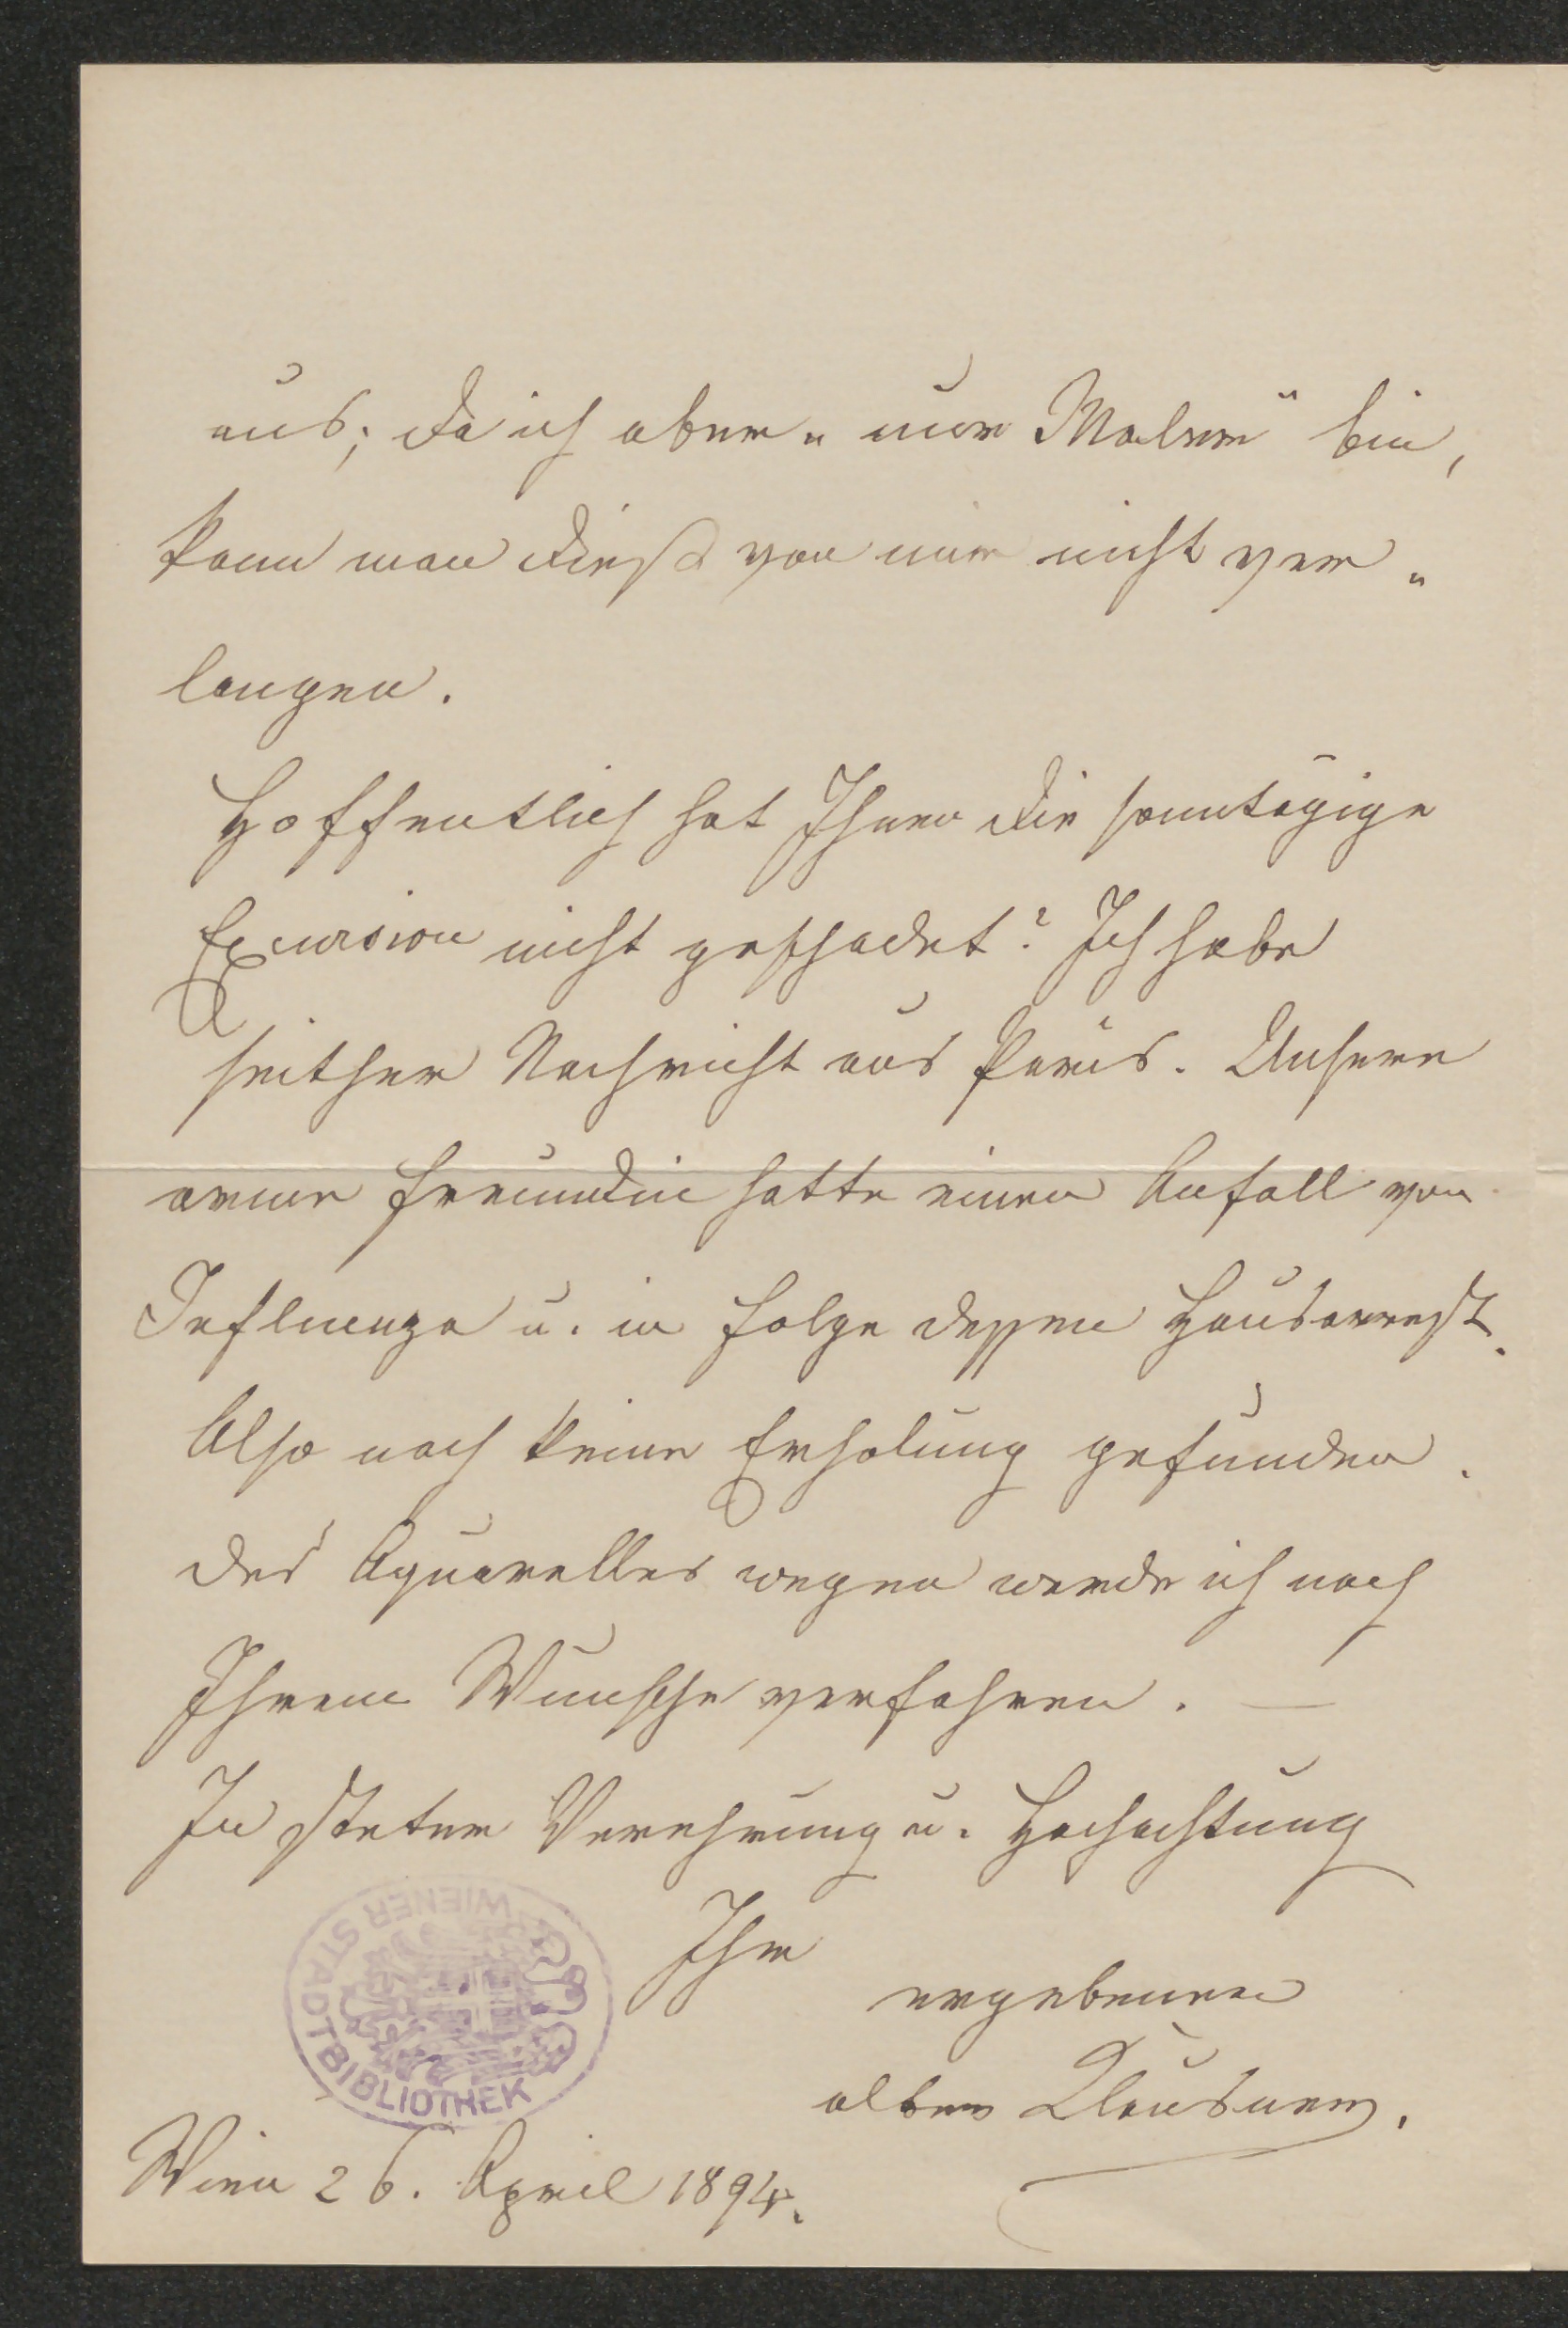 aus; da ich aber „nur Maler“ bin,
kann man dieß von mir nicht ver„
langen.
Hoffentlich hat Ihnen die sonntägige
Excursion nicht geschadet? Ich habe
seither Nachricht aus Paris. Unsere
arme Freundin hatte einen Anfall von
Influenza u. in Folge dessen Hausarrest.
Also noch keine Erholung gefunden.
Des Aquarelles wegen werde ich nach
Ihrem Wunsche verfahren. —
In steter Verehrung u. Hochachtung
Ihr
ergebener
alter Klausner.
WIENER STADTBIBLIOTHEK
Wien 26. April 1894.